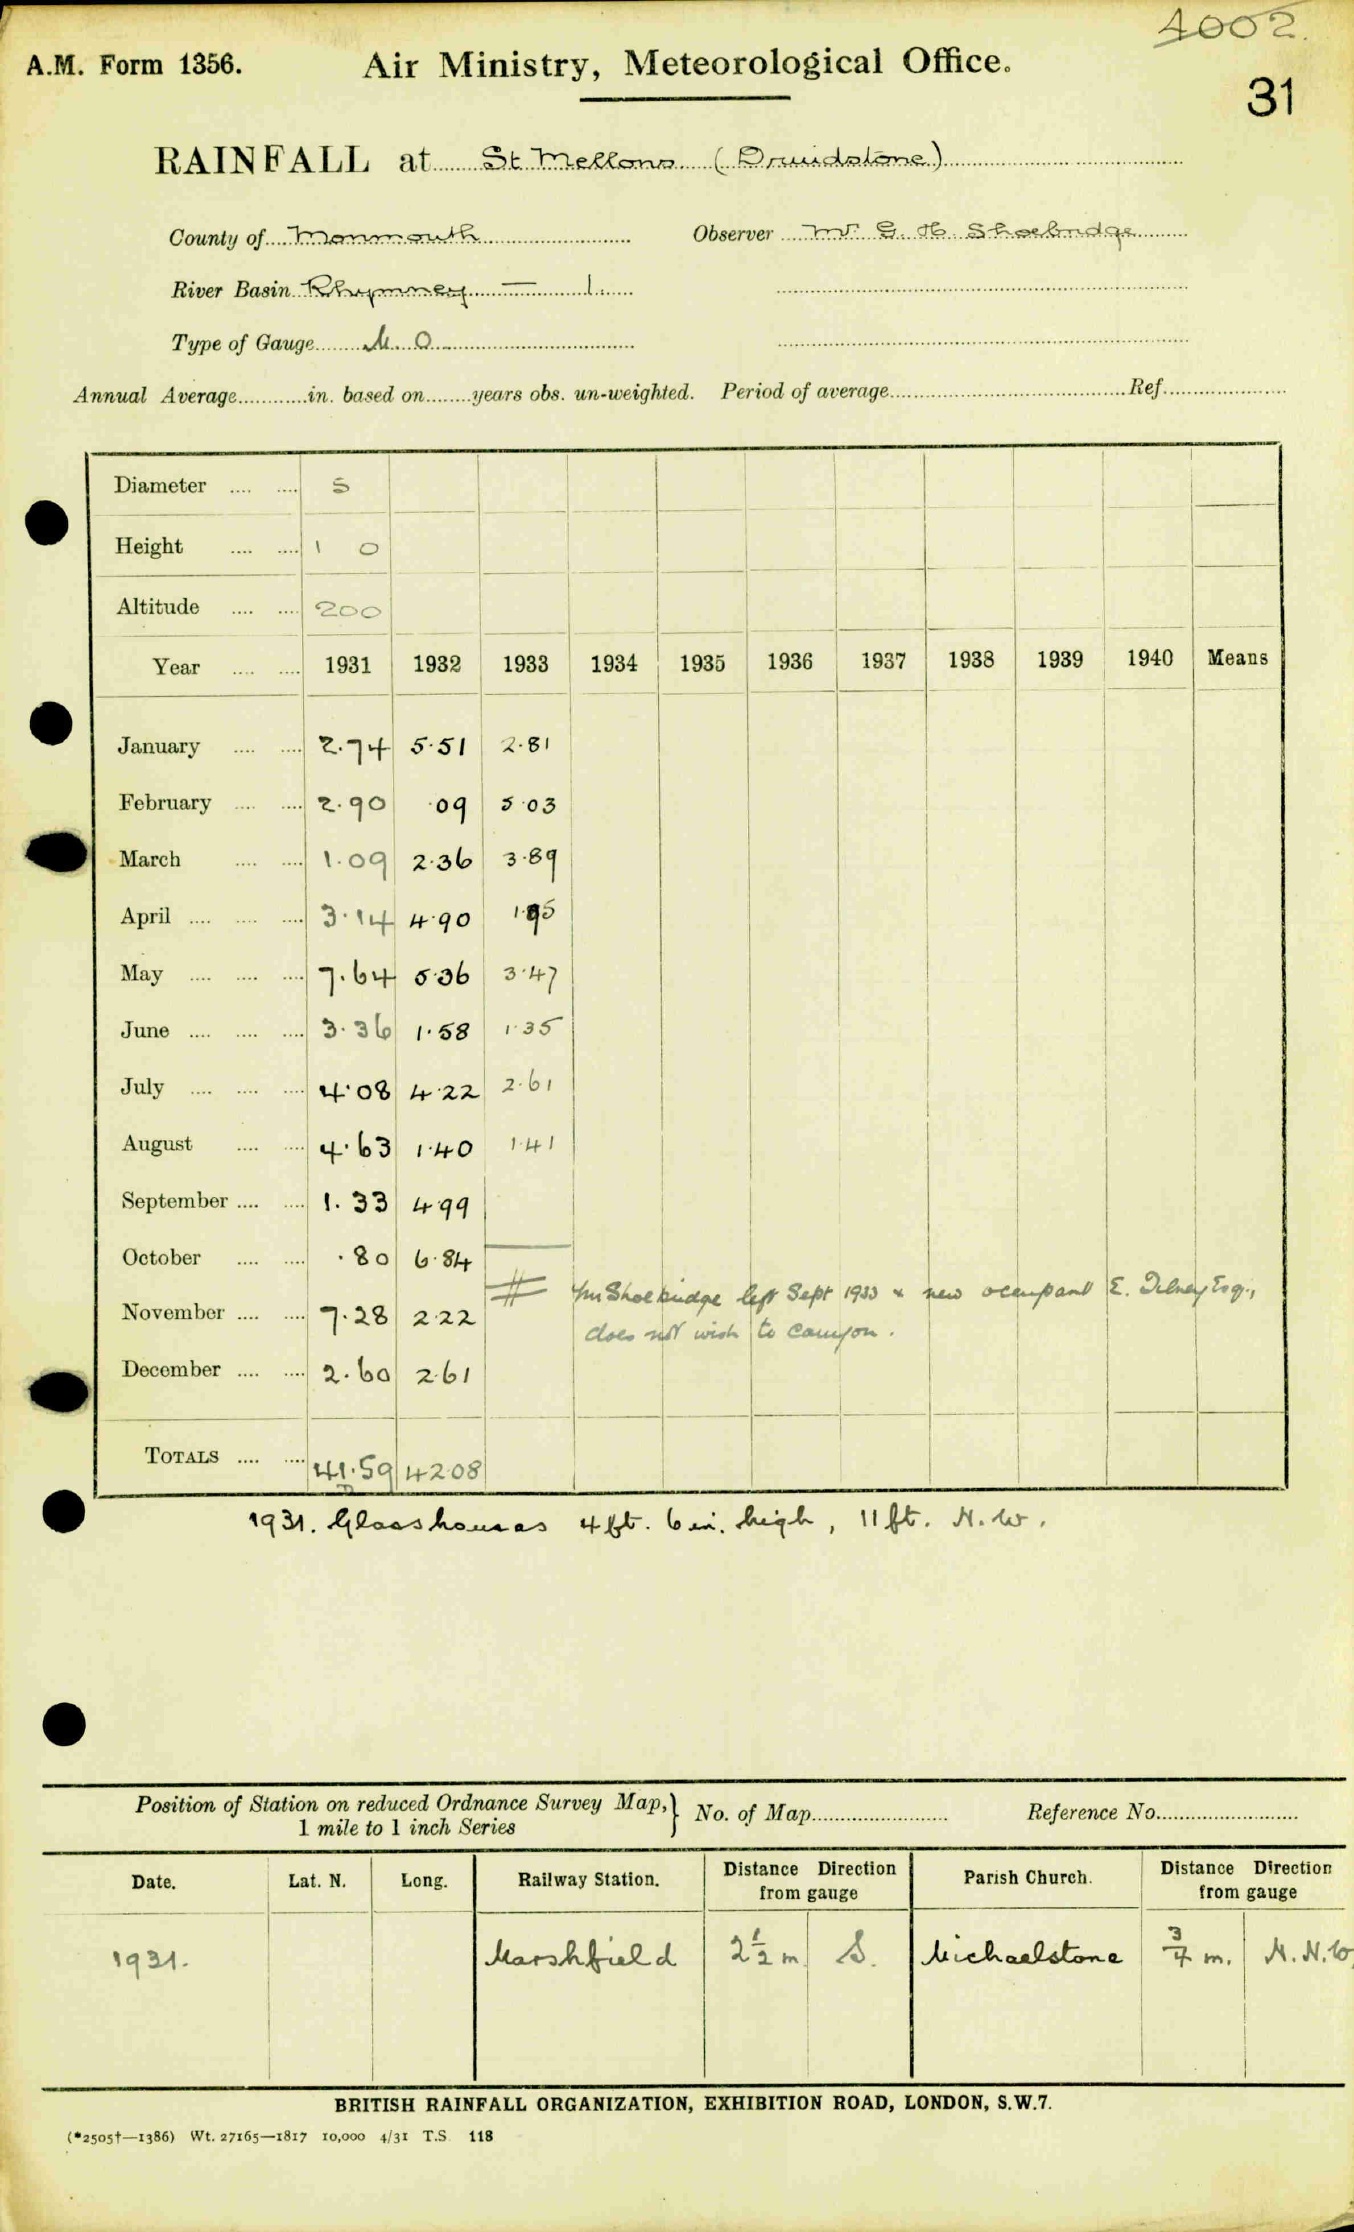 4002.
A.M. Form 1356.
Air Ministry, Meteorological Office.
31
RAINFALL at St Mellons (Druidstone)
County of Monmouth Observer Mr. G. H. Shoebridge
River Basin Rhymney — 1.
Type of Gauge M. O.
Annual Average in. based on years obs. un-weighted. Period of average Ref.
Diameter 5
Height 1 0
Altitude 200
Year 1931 1932 1933 1934 1935 1936 1937 1938 1939 1940 Means
January 2.74 5.51 2.81
February 2.90 .09 5.03
March 1.09 2.36 3.89
April 3.14 4.90 1.95
May 7.64 5.36 3.47
June 3.36 1.58 1.35
July 4.08 4.22 2.61
August 4.63 1.40 1.41
September 1.33 4.99
October .80 6.84
Mr Shoebridge left Sept 1933 & new occupant E. Esq.,
November 7.28 2.22
does not wish to carry on.
December 2.60 2.61
TOTALS 41.59 42.08
1931. Glasshouses 4 ft. 6 in. high, 11 ft. N.W.
Position of Station on reduced Ordnance Survey Map,} No. of Map Reference No.
1 mile to 1 inch Series
Date. Lat. N. Long. Railway Station. Distance Direction from gauge Parish Church. Distance Direction from gauge
1931. Marshfield 2½ m. S. Michaelstone ¾ m. N.N.W
BRITISH RAINFALL ORGANIZATION, EXHIBITION ROAD, LONDON, S.W.7.
(*2505†—1386) Wt. 27165—1817 10,000 4/31 T.S. 118